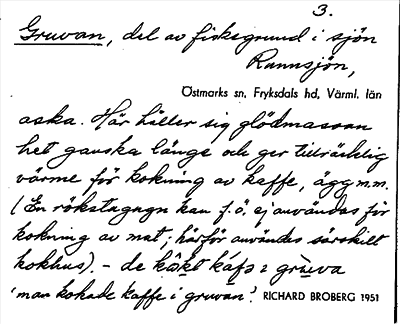 3.
Gruvan, del av fiskegrund i sjön
Rannsjön,
Östmarks sn, Fryksdals hd, Värml. län
aska. Här håller sig glödmassan
het ganska länge och ger tillräcklig
värme för kokning av kaffe, ägg m.m.
(En rökstugugn kan f.ö. ej användas för
kokning av mat, härför användes särskilt
kokhus). – de kok̀t káfə i grùva
'man kokade kaffe i gruvan'. RICHARD BROBERG 1951